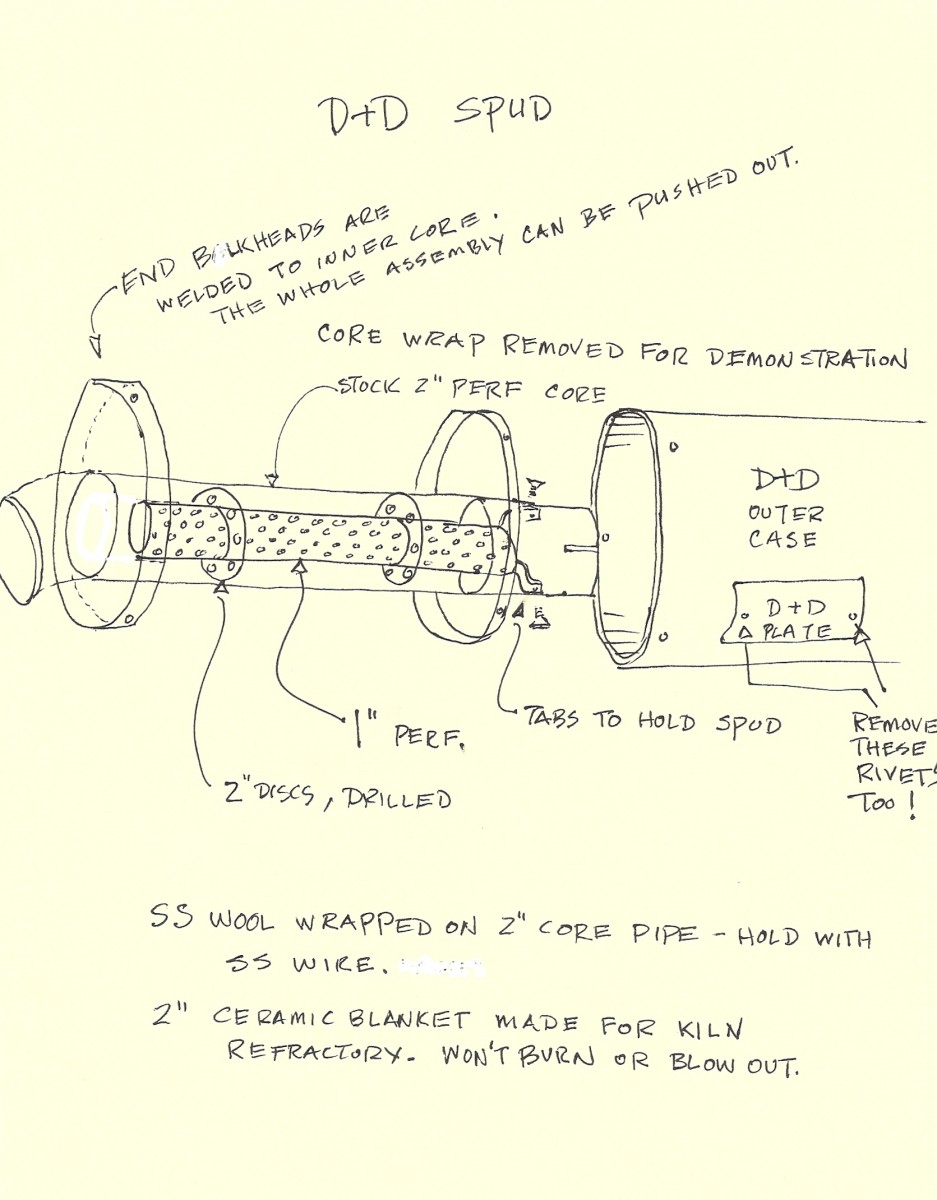 D+D SPUD
END BULKHEADS ARE
WELDED TO INNER CORE.
THE WHOLE ASSEMBLY CAN BE PUSHED OUT.
CORE WRAP REMOVED FOR DEMONSTRATION
STOCK 2" PERF CORE
D+D
OUTER
CASE
D+D
PLATE
TABS TO HOLD SPUD
REMOVE
THESE
RIVETS
TOO!
1" PERF.
2" DISCS, DRILLED
SS WOOL WRAPPED ON 2" CORE PIPE - HOLD WITH
SS WIRE.
2" CERAMIC BLANKET MADE FOR KILN
REFRACTORY. WON'T BURN OR BLOW OUT.